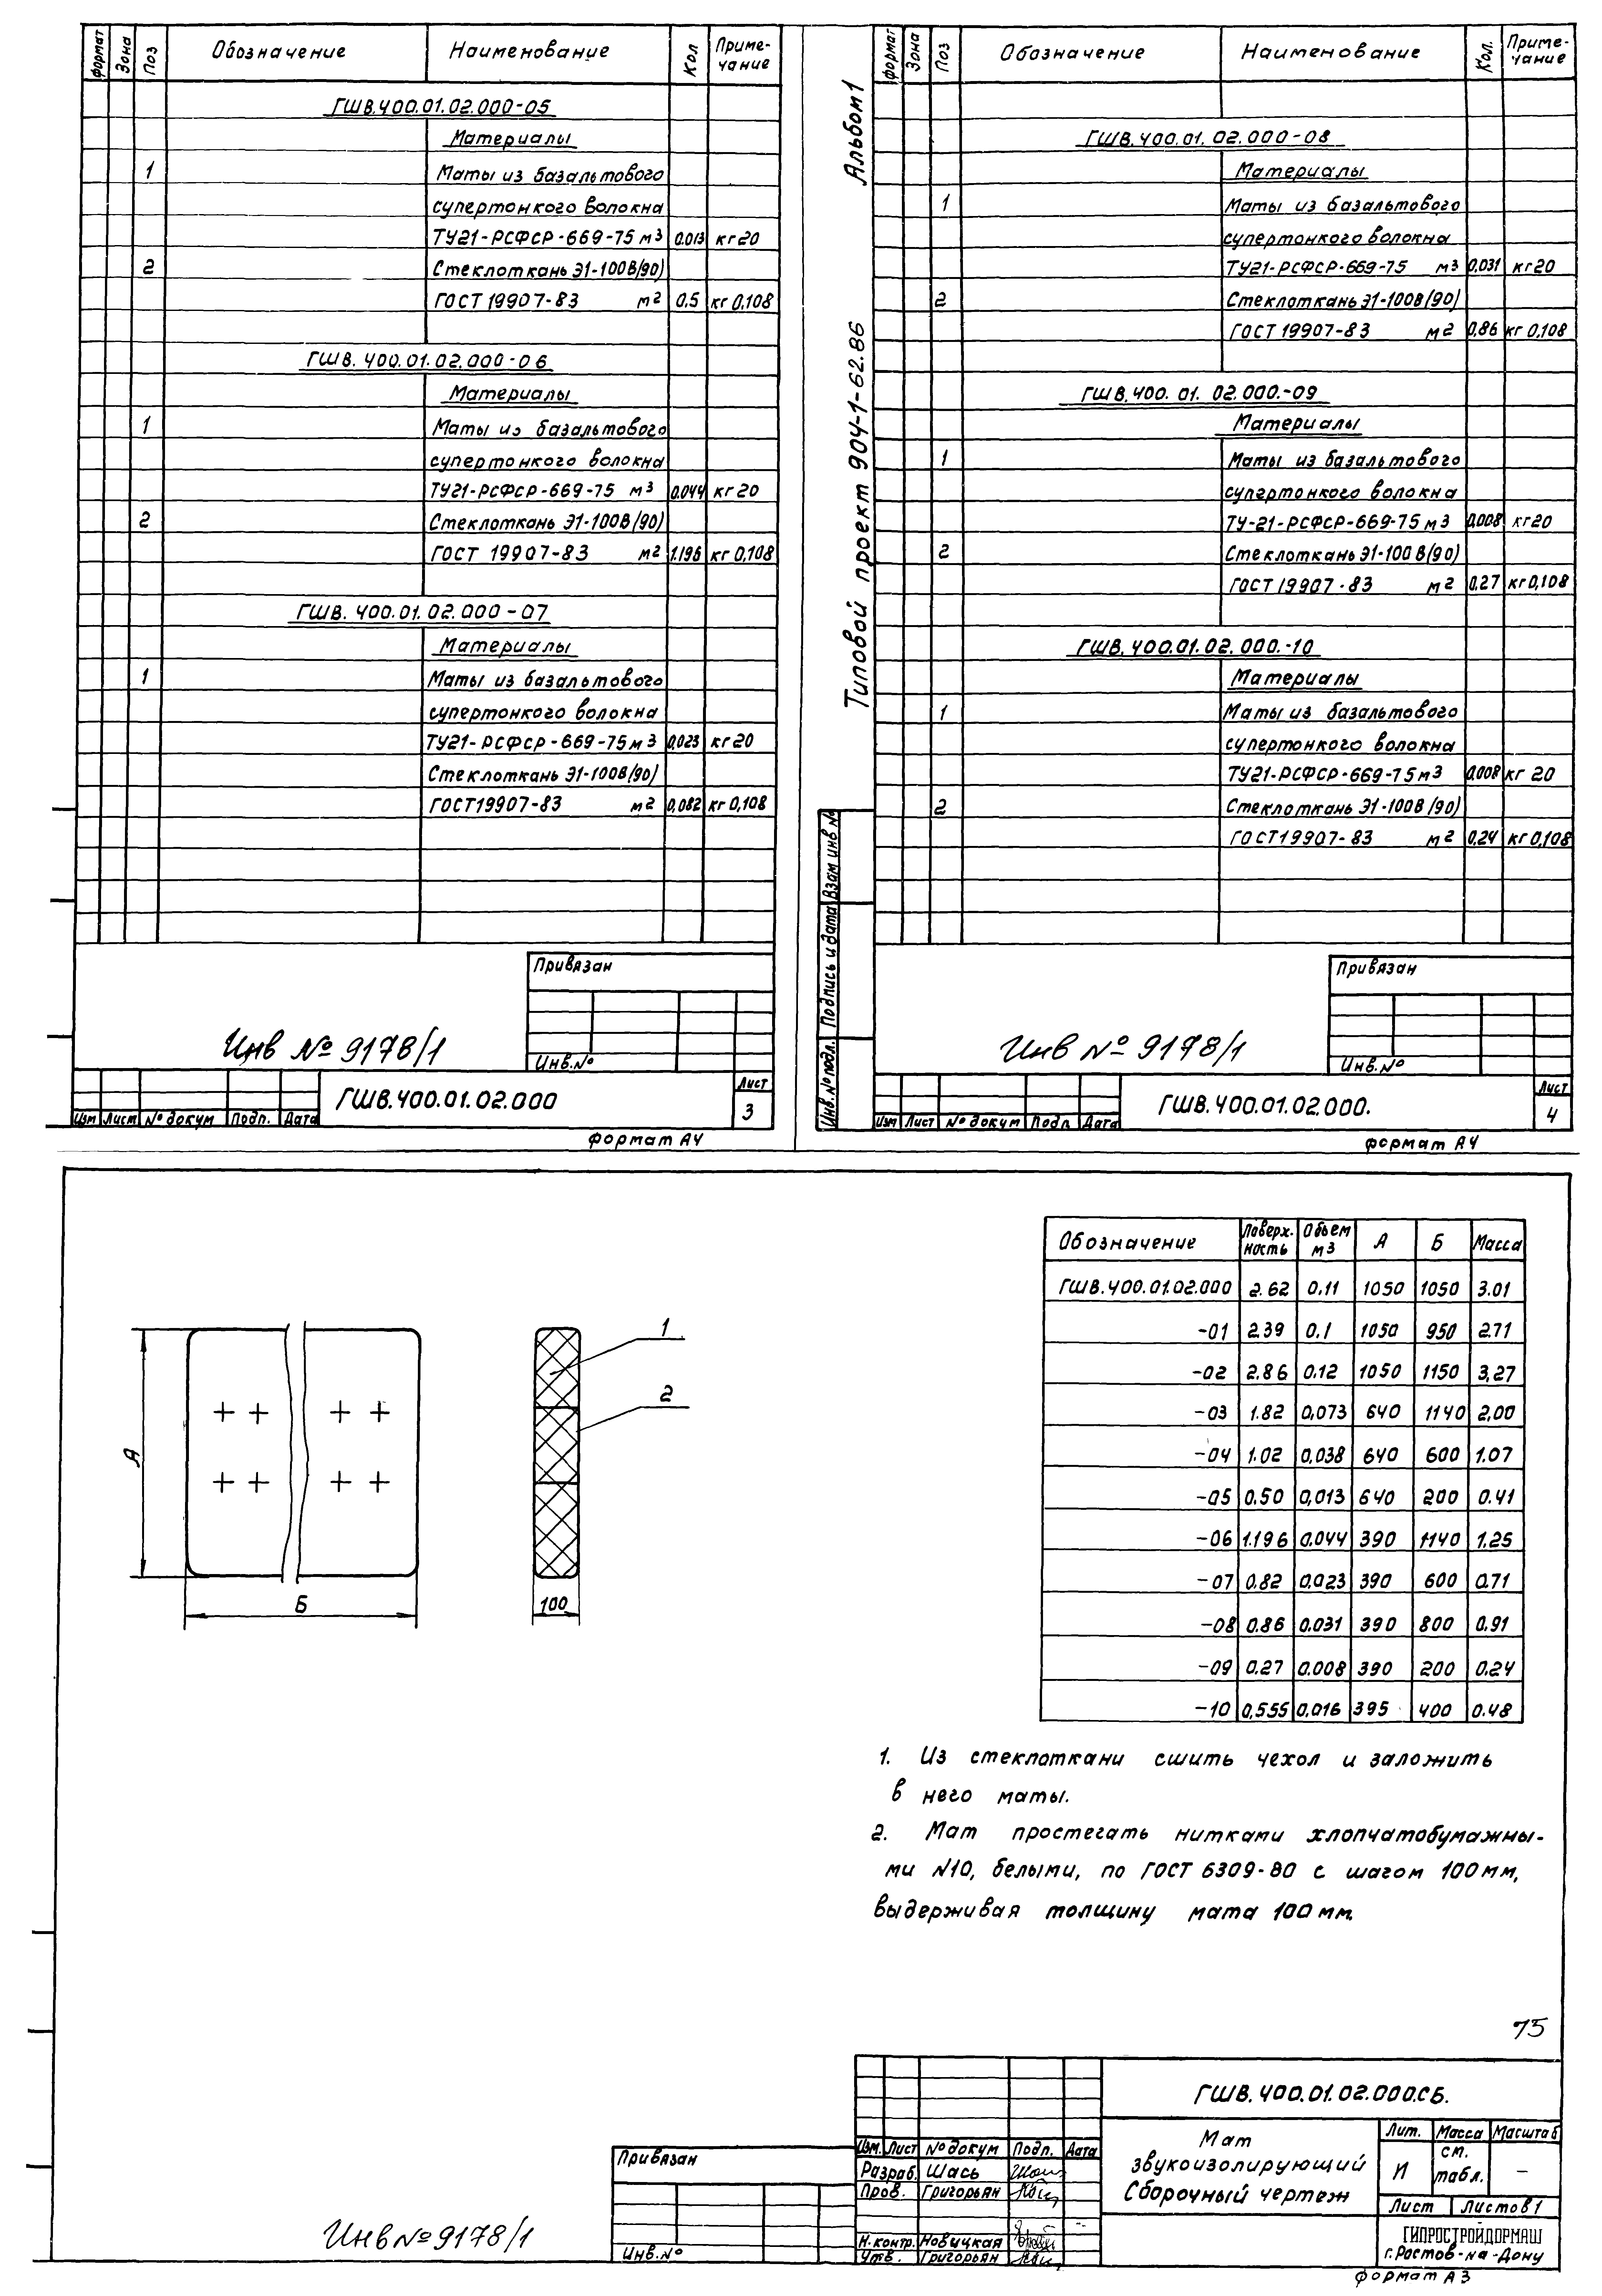 формат Зона Поз Обозначение Наименование Кол Приме-чание
ГШВ.400.01.02.000-05
Материалы
1 Маты из базальтового
супертонкого волокна
ТУ21-РСФСР-669-75 м3 0.013 кг 20
2 Стеклоткань Э1-100В/90)
ГОСТ 19907-83 м2 0.5 кг 0,108
ГШВ.400.01.02.000-06
Материалы
1 Маты из базальтового
супертонкого волокна
ТУ21-РСФСР-669-75 м3 0.044 кг 20
2 Стеклоткань Э1-100В/90)
ГОСТ 19907-83 м2 1.196 кг 0,108
ГШВ.400.01.02.000-07
Материалы
1 Маты из базальтового
супертонкого волокна
ТУ21-РСФСР-669-75 м3 0,023 кг 20
Стеклоткань Э1-100В/90)
ГОСТ 19907-83 м2 0,082 кг 0,108
Привязан
Инв.№
Инв № 9178/1
Изм Лист № докум Подп. Дата
ГШВ.400.01.02.000
Лист
3
формат А4
Альбом 1
Типовой проект 904-1-62.86
Взам инв №
Подпись и дата
Инв.№ подл.
формат Зона Поз Обозначение Наименование Кол. Приме-чание
ГШВ.400.01.02.000-08
Материалы
1 Маты из базальтового
супертонкого волокна
ТУ21-РСФСР-669-75 м3 0,031 кг 20
2 Стеклоткань Э1-100В/90)
ГОСТ 19907-83 м2 0,86 кг 0,108
ГШВ.400.01.02.000.-09
Материалы
1 Маты из базальтового
супертонкого волокна
ТУ-21-РСФСР-669-75 м3 0,008 кг 20
2 Стеклоткань Э1-100В/90)
ГОСТ 19907-83 м2 0,27 кг 0,108
ГШВ.400.01.02.000.-10
Материалы
1 Маты из базальтового
супертонкого волокна
ТУ21-РСФСР-669-75 м3 0.008 кг 20
2 Стеклоткань Э1-100В/90)
ГОСТ 19907-83 м2 0,24 кг 0,108
Привязан
Инв.№
Инв № 9178/1
Изм Лист № докум Подп Дата
ГШВ.400.01.02.000.
Лист
4
формат А4
А
Б
1
2
100
Обозначение Поверх-ность Объем м3 А Б Масса
ГШВ.400.01.02.000 2.62 0.11 1050 1050 3.01
-01 2.39 0.1 1050 950 2.71
-02 2.86 0.12 1050 1150 3,27
-03 1.82 0,073 640 1140 2,00
-04 1.02 0,038 640 600 1.07
-05 0.50 0,013 640 200 0.41
-06 1.196 0.044 390 1140 1,25
-07 0.82 0.023 390 600 0.71
-08 0.86 0.031 390 800 0.91
-09 0.27 0.008 390 200 0.24
-10 0,555 0,016 395 400 0.48
1. Из стеклоткани сшить чехол и заложить
в него маты.
2. Мат простегать нитками хлопчатобумажны-
ми №10, белыми, по ГОСТ 6309-80 с шагом 100 мм,
выдерживая толщину мата 100 мм.
75
ГШВ.400.01.02.000.СБ.
Изм. Лист № докум Подп. Дата
Разраб. Шась
Пров. Григорьян
Н.контр. Новицкая
Утв. Григорьян
Мат
звукоизолирующий
Сборочный чертеж
Лит. Масса Масштаб
И см. табл. –
Лист Листов 1
ГИПРОСТРОЙДОРМАШ
г.Ростов-на-Дону
Привязан
Инв.№
Инв № 9178/1
формат А3